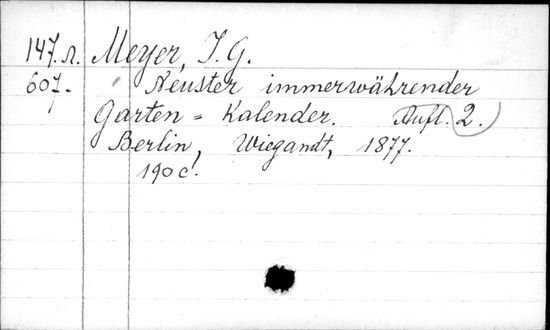 147.л. Meyer, J. G.
607. Neuster immerwährender
Garten = Kalender. Aufl. 2.
Berlin, Wiegandt, 1877.
190 c.